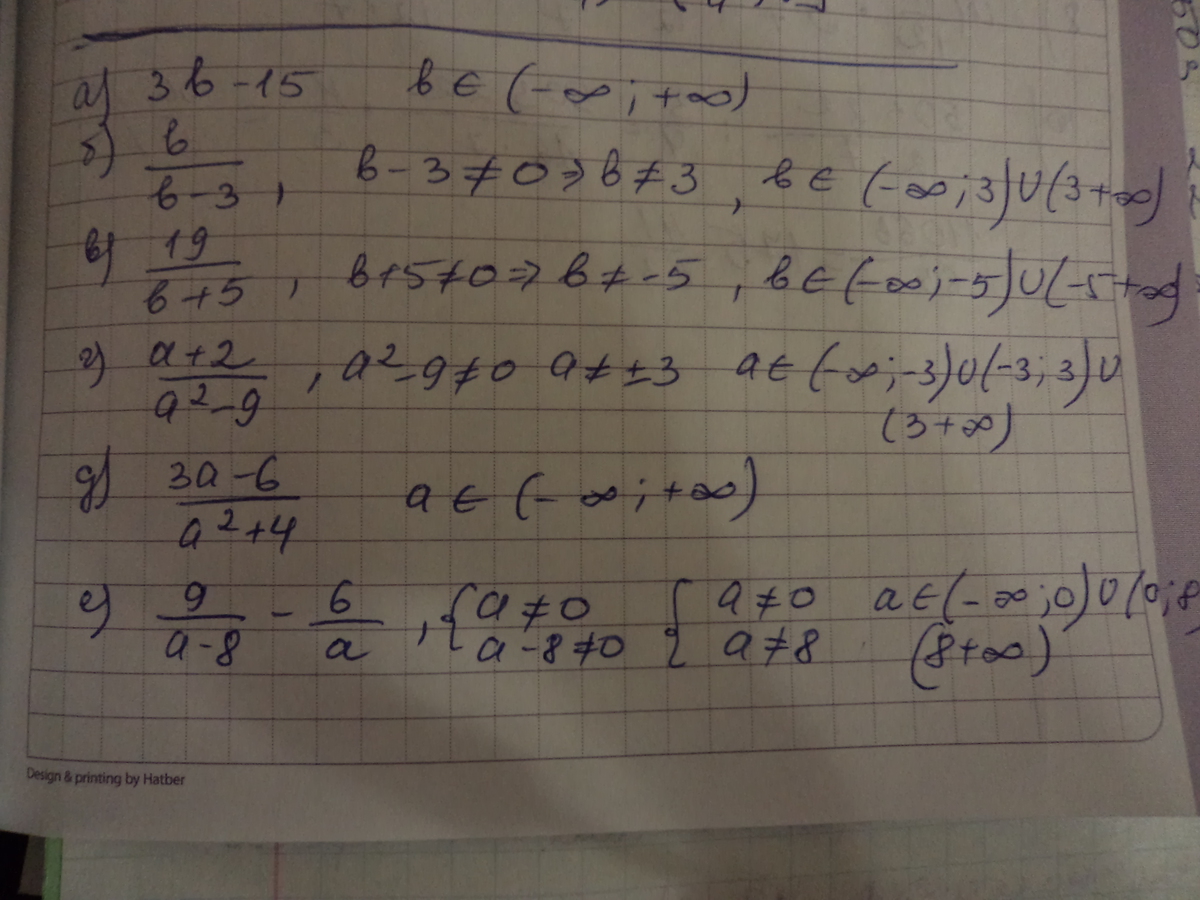 а) 3b-15 b ∈ (-∞; +∞)
б) b/(b-3), b-3≠0 ⇒ b≠3, b ∈ (-∞; 3)∪(3+∞)
в) 19/(b+5), b+5≠0 ⇒ b≠-5, b ∈ (-∞; -5)∪(-5+∞)
г) (a+2)/(a²-9), a²-9≠0 a≠±3 a ∈ (-∞; -3)∪(-3; 3)∪
(3+∞)
д) (3a-6)/(a²+4) a ∈ (-∞; +∞)
е) 9/(a-8) - 6/a, {a≠0 {a≠0 a ∈ (-∞; 0)∪(0; 8)
a-8≠0 a≠8 (8+∞)
Design & printing by Hatber